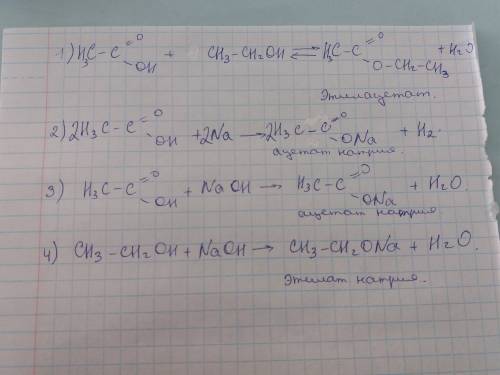 1) H₃C – C =O OH + CH₃ – CH₂OH ⇌ H₃C – C =O O – CH₂ – CH₃ + H₂O
Этилацетат.
2) 2H₃C – C =O OH + 2Na → 2H₃C – C =O ONa + H₂.
ацетат натрия.
3) H₃C – C =O OH + NaOH → H₃C – C =O ONa + H₂O.
ацетат натрия
4) CH₃ – CH₂OH + NaOH → CH₃ – CH₂ONa + H₂O.
Этилат натрия.